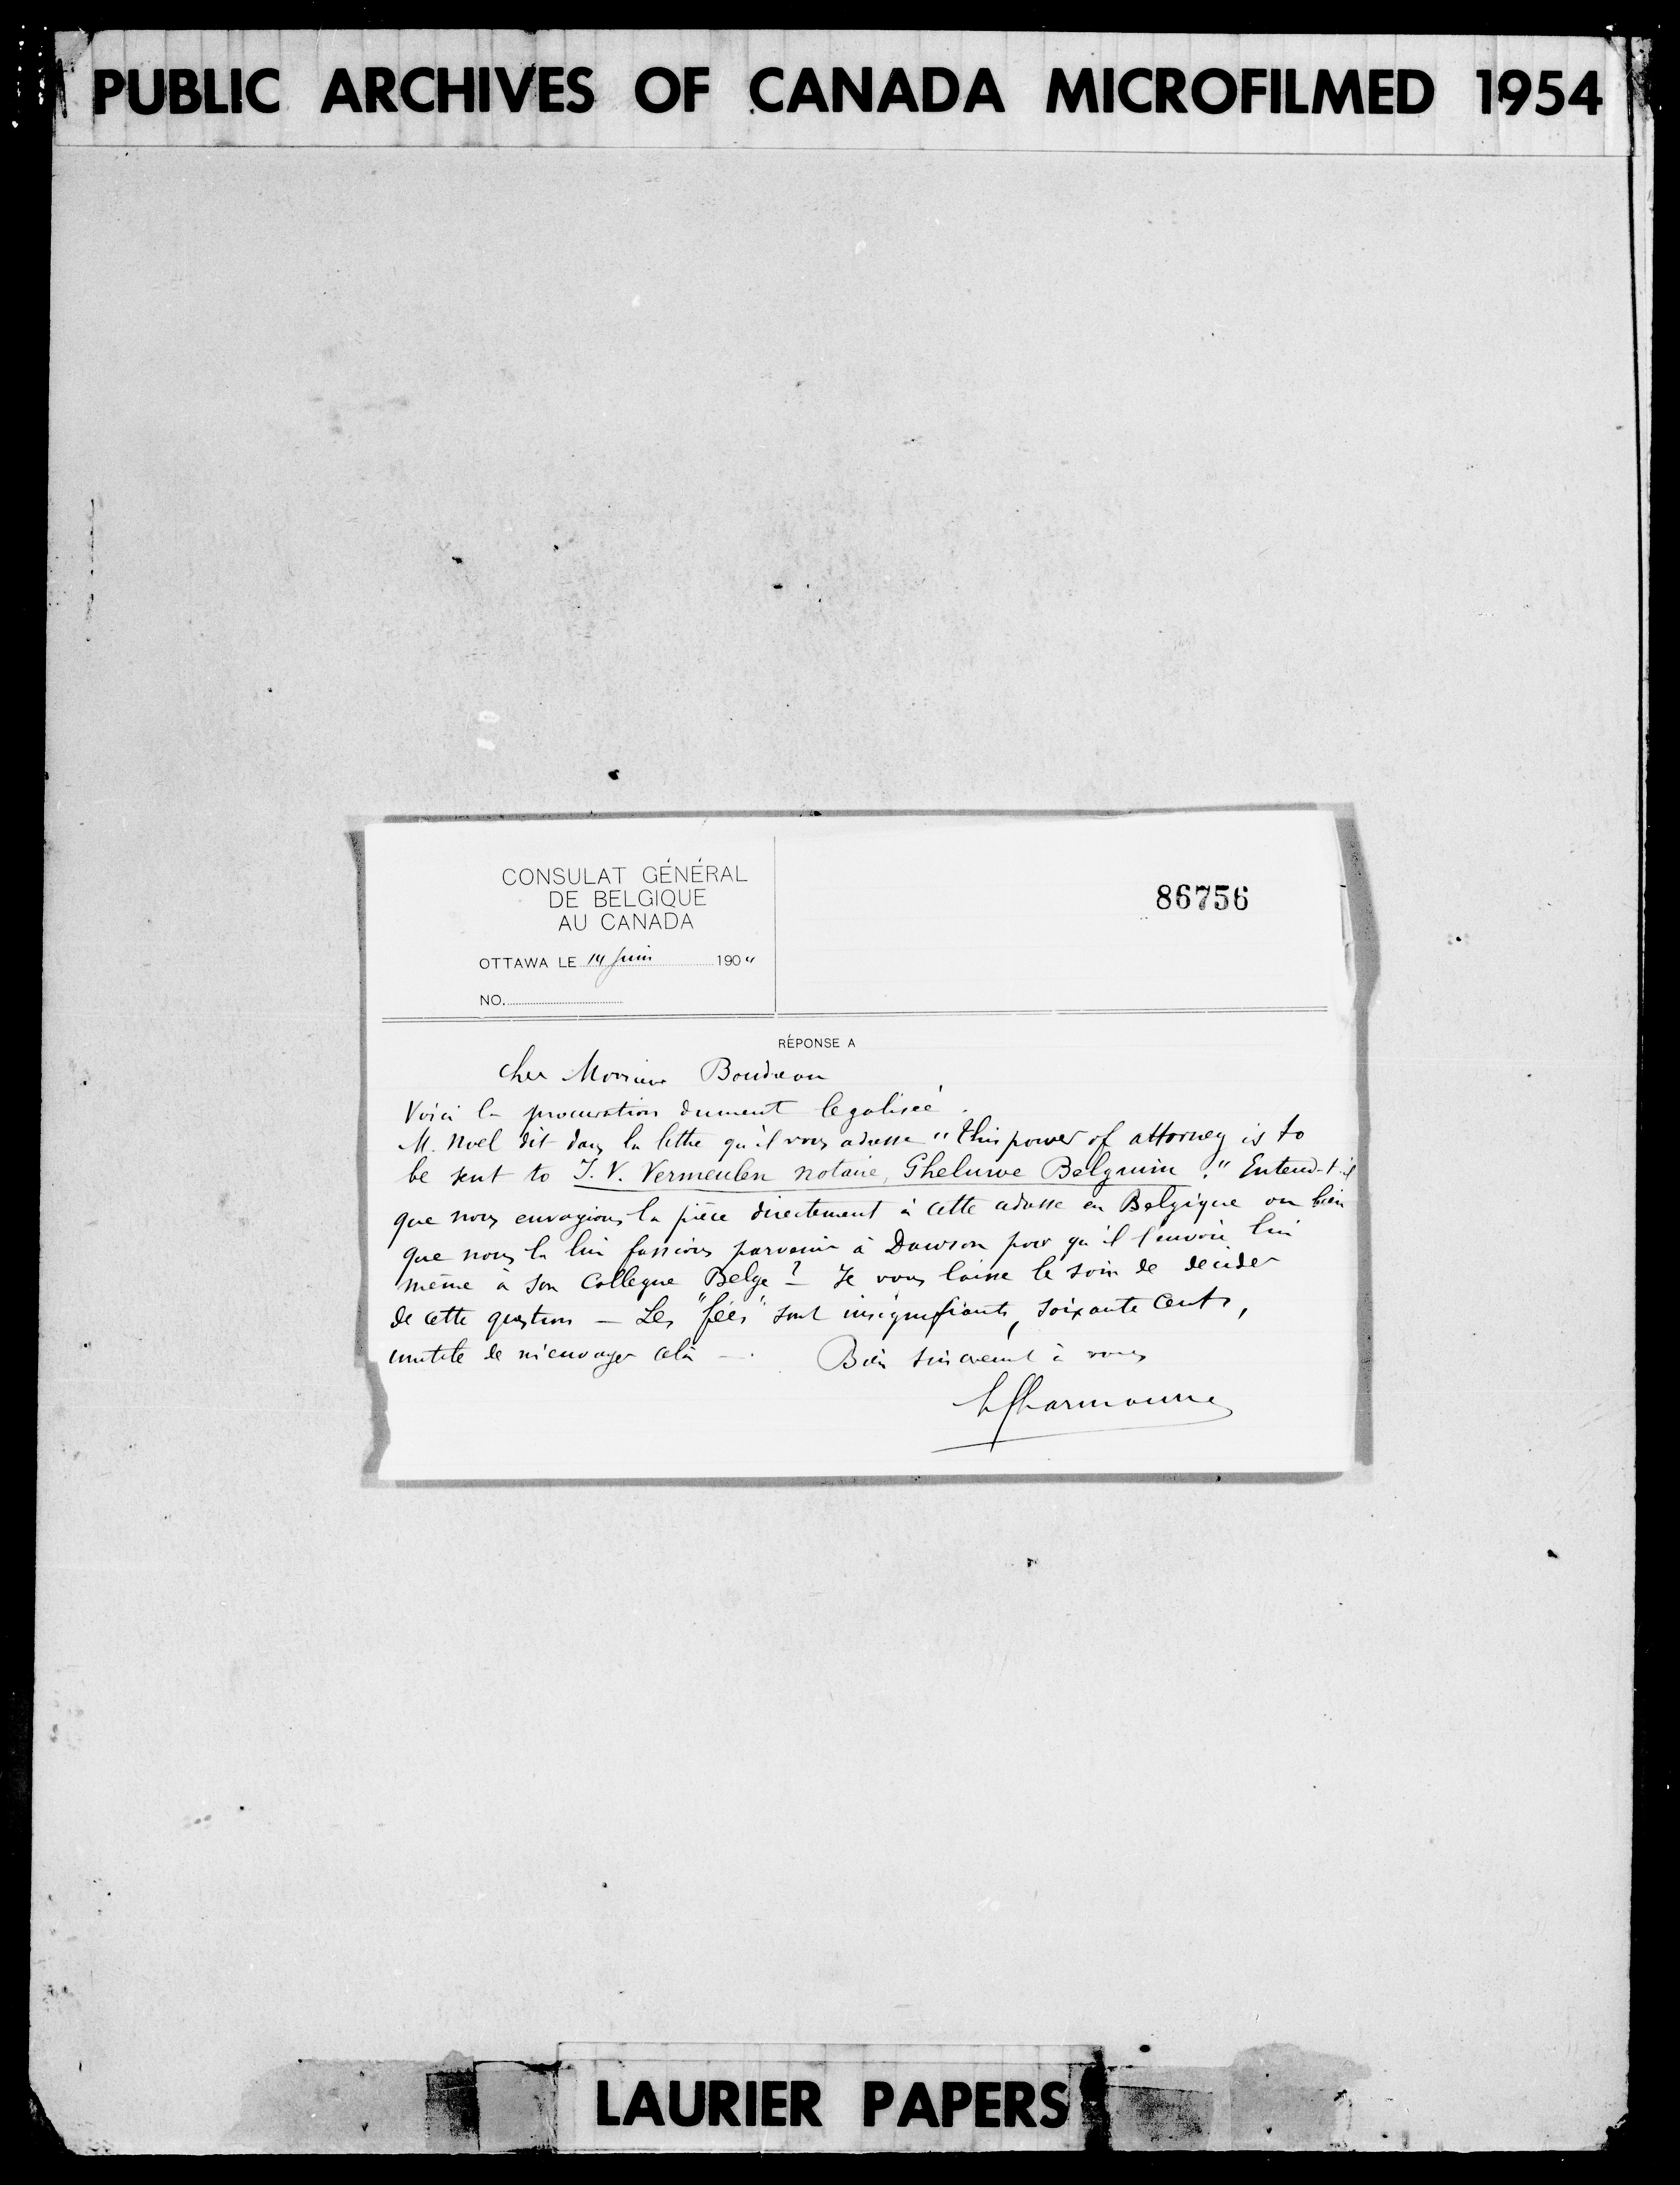 PUBLIC ARCHIVES OF CANADA MICROFILMED 1954
CONSULAT GÉNÉRAL
DE BELGIQUE
AU CANADA
86756
OTTAWA LE 14 Juin 1904
NO.
RÉPONSE A
Cher Monsieur Boudreau
Voici la procuration dument legalisée.
M. Noel dit dans la lettre qu'il vous adresse "this power of attorney is to
be sent to J. V. Vermeulen notaire, Gheluwe Belgium." Entend-t-il
que nous envoyions la pièce directement à cette adresse en Belgique ou bien
que nous la lui fassions parvenir à Dawson pour qu'il l'envoie lui
même à son collegue Belge? — Je vous laisse le soin de decider
de cette question — Les "fées" sont insignifiants, soixante cents,
inutile de m'envoyer cela —. Bien sincerement à vous
LAURIER PAPERS